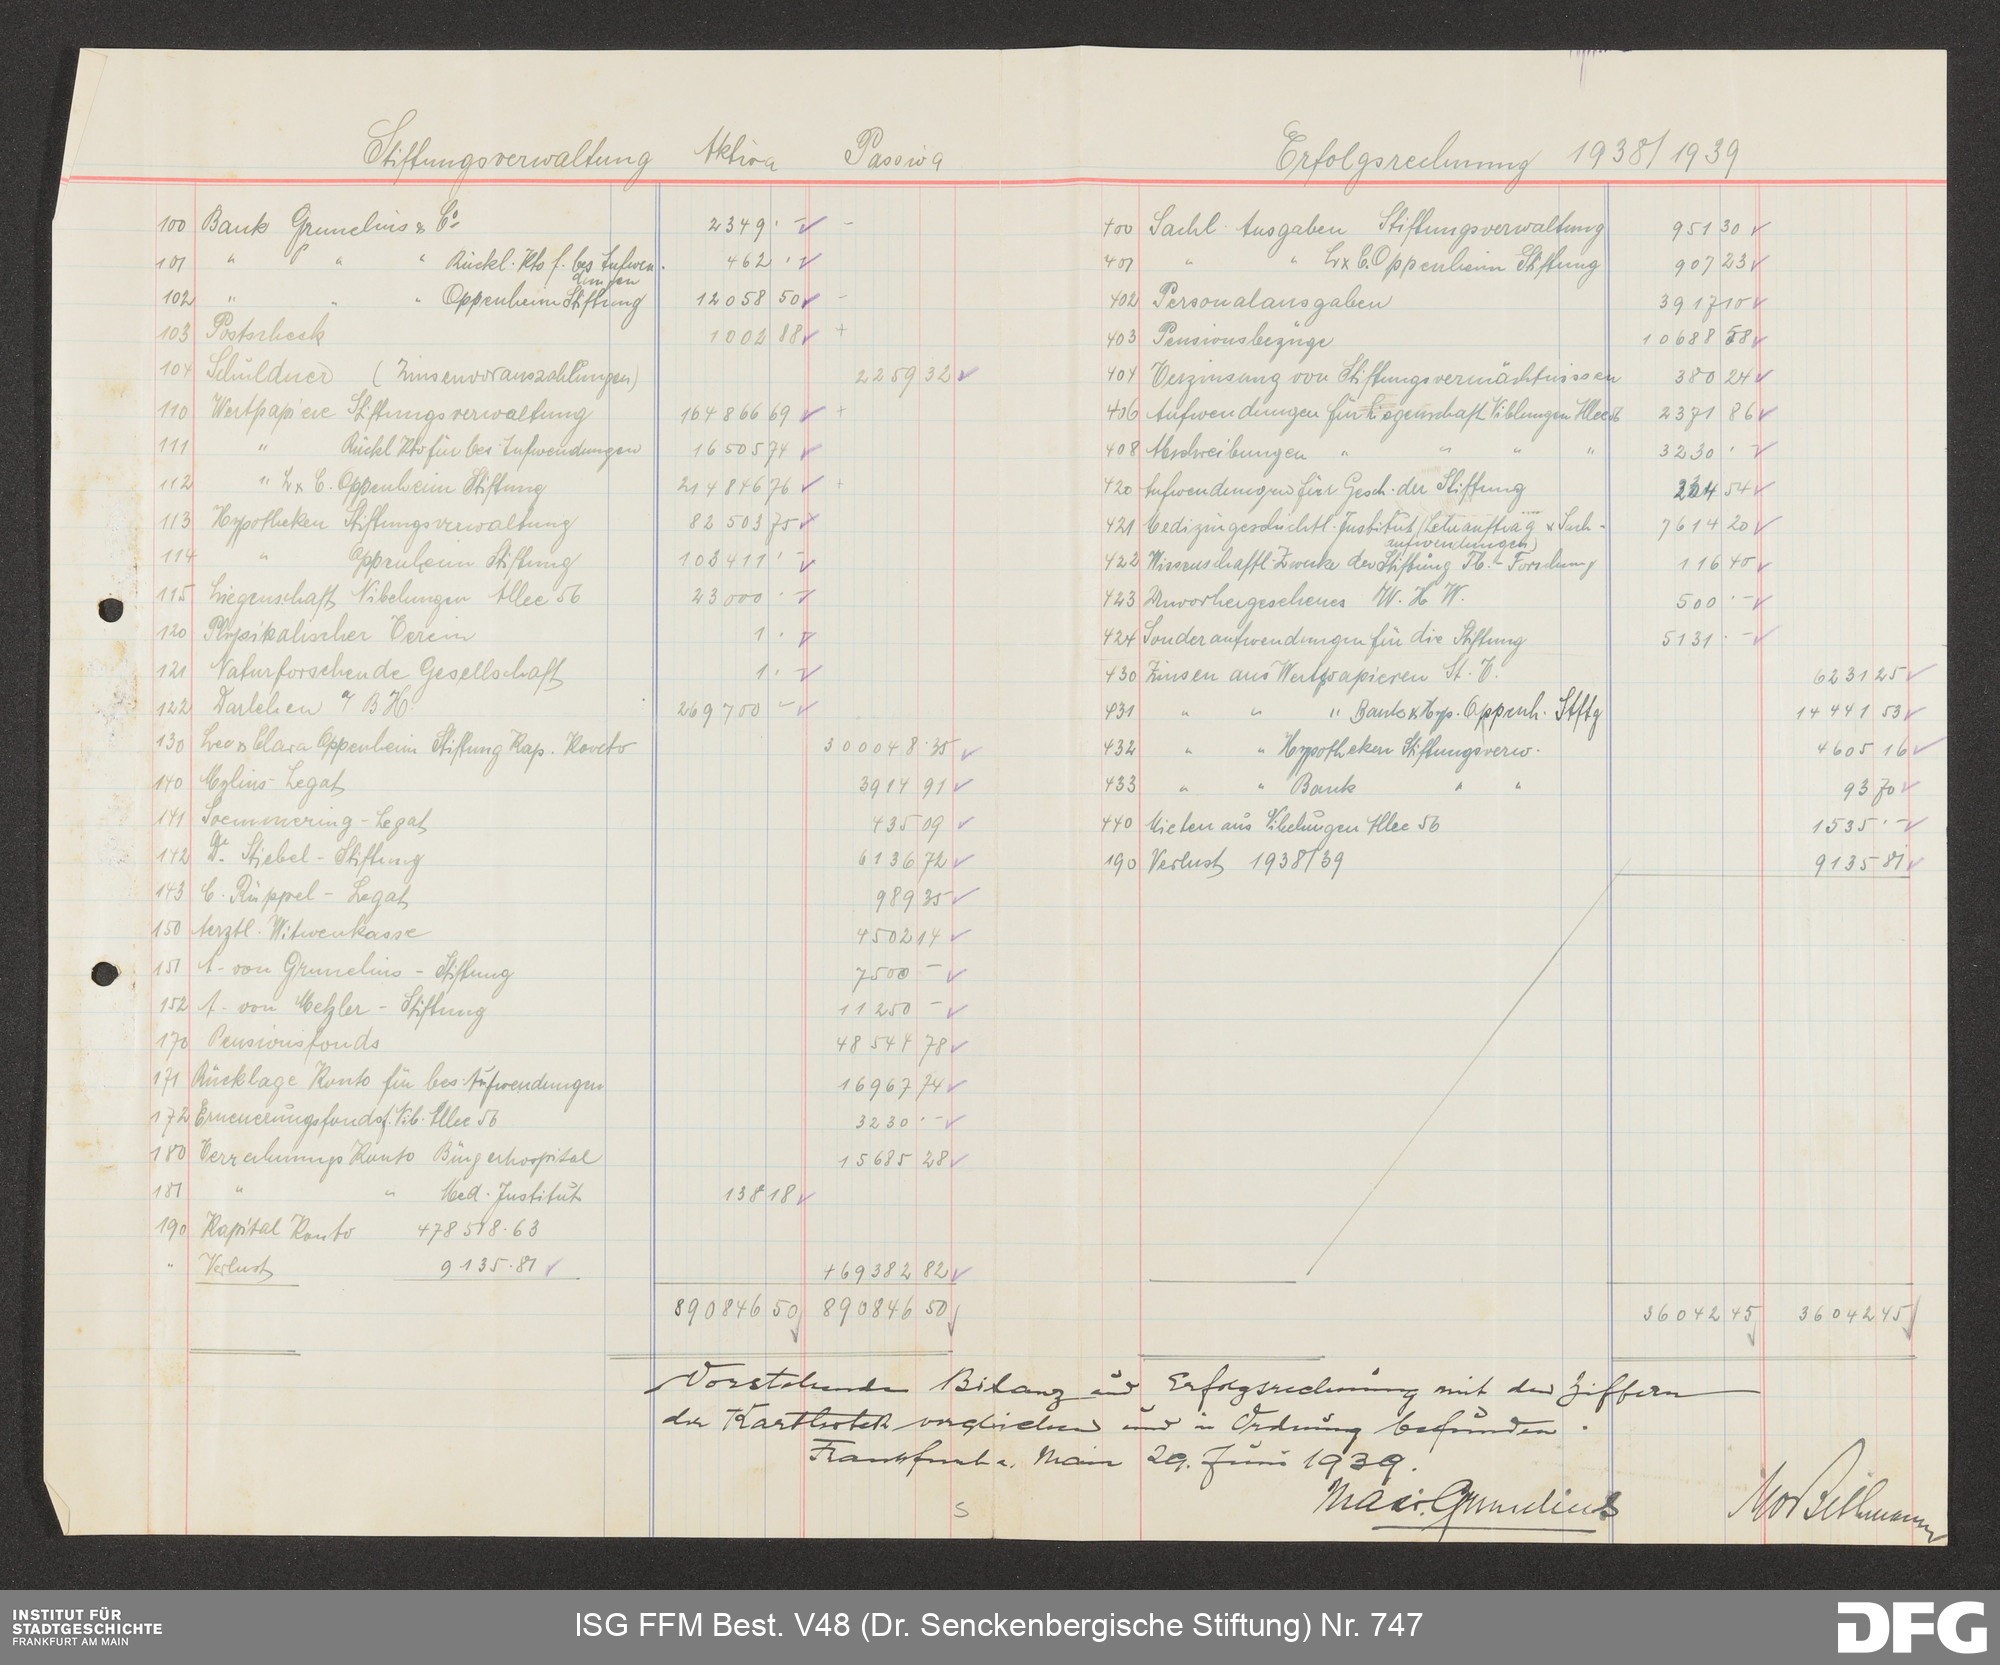 Stiftungsverwaltung Aktiva Passiva
100 Bank Grunelius & Co 2349.–
101 " " " " Rückl. Kto f. bes. Aufwen- 462.
dungen
102 " " " Oppenheim Stiftung 12058 50
103 Postscheck 1002 88
104 Schuldner (Zinsenvorauszahlungen) 2259 32
110 Wertpapiere Stiftungsverwaltung 164866 69
111 " Rückl Kto für bes. Aufwendungen 16505 74
112 " L & C. Oppenheim Stiftung 214846 76
113 Hypotheken Stiftungsverwaltung 82503 75
114 " Oppenheim Stiftung 103411.–
115 Liegenschaft Nibelungen Allee 56 23000.–
120 Physikalischer Verein 1.
121 Naturforschende Gesellschaft 1.–
122 Darlehen a/ B H. 269700 –
130 Leo & Clara Oppenheim Stiftung Kap. Konto 300048.35
140 Mylius-Legat 3914 91
141 Soemmering-Legat 435 09
142 Dr. Stiebel-Stiftung 6136 72
143 C. Rüppel-Legat 989 35
150 Aerztl. Witwenkasse 4502 14
151 A. von Grunelius-Stiftung 7500 –
152 A. von Metzler-Stiftung 11250 –
170 Pensionsfonds 48544 78
171 Rücklage Konto für bes. Aufwendungen 16967 74
172 Erneuerungsfonds f. Nib. Allee 56 3230.–
180 Verrechnungs Konto Bürgerhospital 15685 28
181 " " Med. Institut 138 18
190 Kapital Konto 478518.63
" Verlust 9135.81 469382 82
890846 50 890846 50
Erfolgsrechnung 1938/1939
400 Sachl. Ausgaben Stiftungsverwaltung 951 30
401 " " L & C. Oppenheim Stiftung 907 23
402 Personalausgaben 3917 10
403 Pensionsbezüge 10688 58
404 Verzinsung von Stiftungsvermächtnissen 380 24
406 Aufwendungen für Liegenschaft Niblungen Allee 56 2371 86
408 Abschreibungen " " " " 3230.–
420 Aufwendungen für Gesch. der Stiftung 54
421 Medizingeschichtl. Institut (Lehrauftrag & Sach-
aufwendungen) 7614 20
422 Wissenschaftl. Zwecke der Stiftung Tb.-Forschung 116 40
423 Unvorhergesehenes W. H. W. 500.–
424 Sonderaufwendungen für die Stiftung 5131.–
430 Zinsen aus Wertpapieren St. V. 6231 25
431 " " " Bank & Hyp. Oppenh. Stftg 14441 53
432 " " Hypotheken Stiftungsverw. 4605 16
433 " " Bank " " 93 70
440 Mieten aus Nibelungen Allee 56 1535.–
190 Verlust 1938/39 9135 81
36042 45 36042 45
Vorstehende Bilanz und Erfolgsrechnung mit den Ziffern
der Karthotek verglichen und in Ordnung befunden.
Frankfurt a. Main 29. Juni 1939.
Max v. Grunelius Bethmann
S
INSTITUT FÜR
STADTGESCHICHTE
FRANKFURT AM MAIN
ISG FFM Best. V48 (Dr. Senckenbergische Stiftung) Nr. 747
DFG